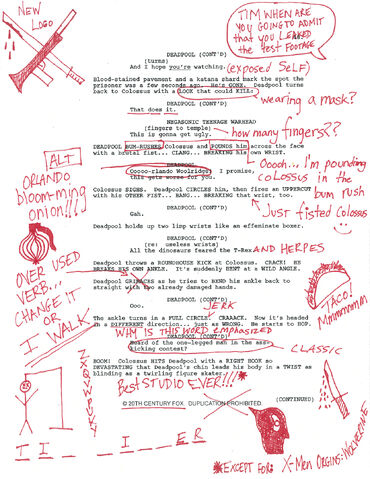 NEW
LOGO
TIM WHEN ARE
YOU GOING TO ADMIT
that you LEAKED
the test FOOTAGE
DEADPOOL (CONT'D)
(turns)
And I hope you're watching.
(exposed SELF)
Blood-stained pavement and a katana shard mark the spot the
prisoner was a few seconds ago. He's GONE. Deadpool turns
back to Colossus with a LOOK that could KILL:
wearing a mask?
DEADPOOL (CONT'D)
That does it.
NEGASONIC TEENAGE WARHEAD
(fingers to temple)
This is gonna get ugly.
how many fingers??
DEADPOOL BUM-RUSHES Colossus and POUNDS him across the face
with a brutal fist... CLANG... BREAKING his OWN WRIST.
Ooooh... I'm pounding
COLOSSUS in the
bum rush
ALT
ORLANDO
bloom-ming
onion!!!
DEADPOOL
Ooooo-rlando Woolridge! I promise,
this gets worse for you.
Colossus SIGHS. Deadpool CIRCLES him, then fires an UPPERCUT
with his OTHER FIST... BANG... BREAKING that wrist, too.
Just fisted Colossus
DEADPOOL (CONT'D)
Gah.
Deadpool holds up two limp wrists like an effeminate boxer.
DEADPOOL (CONT'D)
(re: useless wrists)
All the dinosaurs feared the T-Rex.
AND HERPES
Deadpool throws a ROUNDHOUSE KICK at Colossus. CRACK! HE
BREAKS HIS OWN ANKLE. It's suddenly BENT at a WILD ANGLE.
OVER USED
VERB...
CHANGE IT
OR
I WALK
Deadpool GRIMACES as he tries to BEND his ankle back to
straight with two already damaged hands.
TACO!
Mmmmmmm
DEADPOOL (CONT'D)
Ooo.
JERK
The ankle turns in a FULL CIRCLE! CRAAACK. Now it's headed
in a DIFFERENT direction... just as WRONG. He starts to HOP.
WHY IS THIS WORD EMPHASIZED
DEADPOOL (CONT'D)
Heard of the one-legged man in the ass-
kicking contest?
CLASSIC
BOOM! Colossus HITS Deadpool with a RIGHT HOOK so
DEVASTATING that Deadpool's chin leads his body in a TWIST as
blinding as a twirling figure skater.
Best STUDIO EVER!!!*
(CONTINUED)
© 20TH CENTURY FOX. DUPLICATION PROHIBITED.
T I _ _ _ I _ E R
*EXCEPT FOR: X-Men Orgins: WOLVERINE